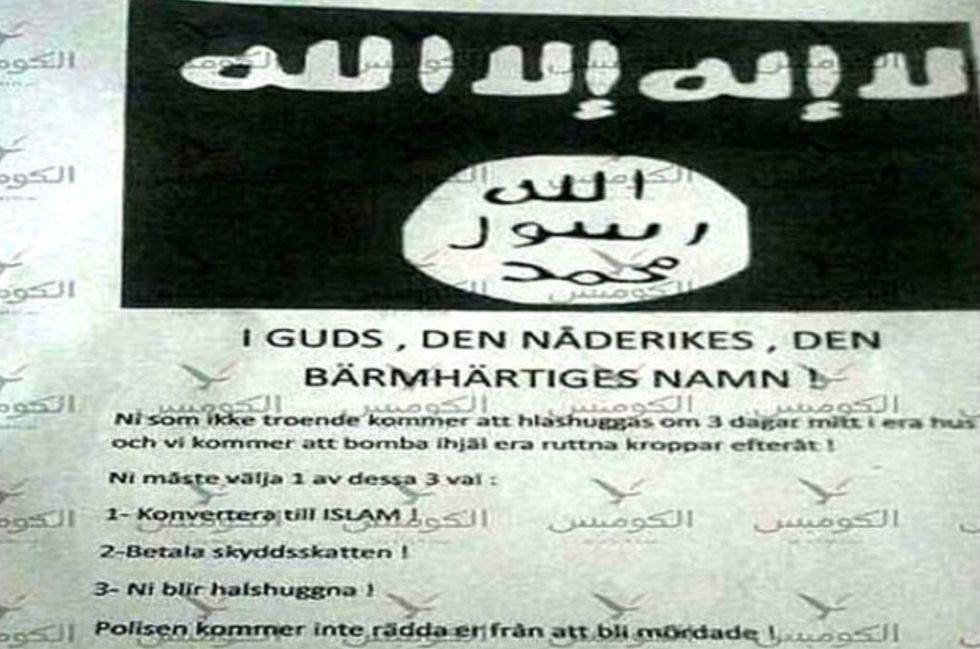 لا إله إلا الله
الله
رسول
محمد
I GUDS , DEN NÅDERIKES , DEN
BÄRMHÄRTIGES NAMN !
Ni som ikke troende kommer att hlashuggas om 3 dagar mitt i era hus
och vi kommer att bomba ihjäl era ruttna kroppar efteråt !
Ni måste välja 1 av dessa 3 val :
1- Konvertera till ISLAM !
2-Betala skyddsskatten !
3- Ni blir halshuggna !
Polisen kommer inte rädda er från att bli mördade !
الكومبس